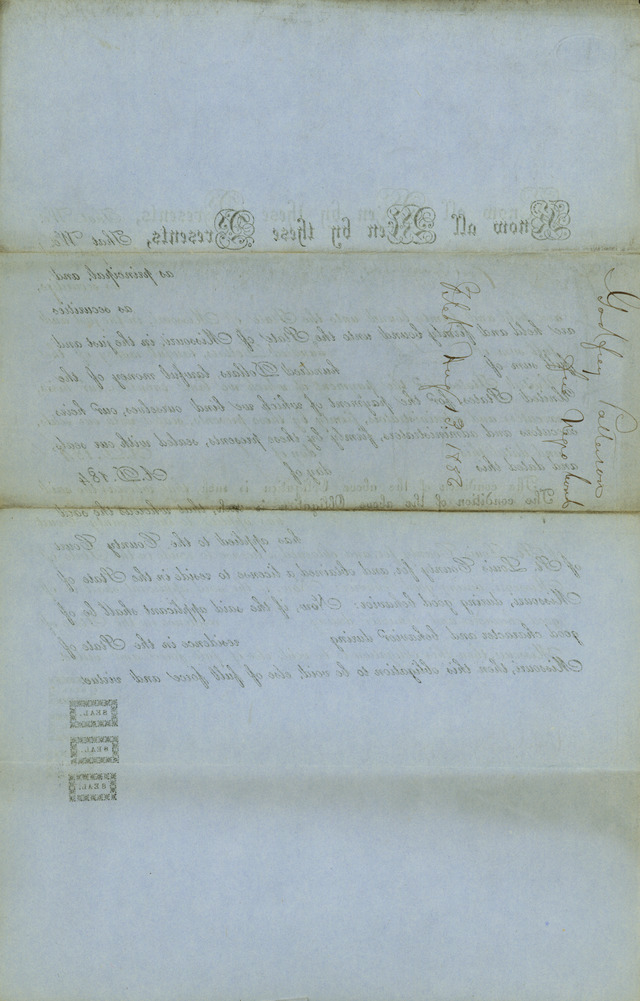 Know all Men by these Presents, That We,
as principal, and
as securities
are held and firmly bound unto the State of Missouri, in the just and
full sum of hundred Dollars lawful money of the
United States, for the payment of which we bind ourselves, our heirs,
executors and administrators, firmly by these presents, sealed with our seals,
and dated this day of A. D. 184
The condition of the above Obligation is such, that, whereas the said
has applied to the County Court
of St. Louis County for and obtained a license to reside in the State of
Missouri, during good behavior: Now, if the said applicant shall be of
good character and behavior during residence in the State of
Missouri, then this obligation to be void, else of full force and virtue
SEAL.
SEAL.
SEAL.
Godfrey Patterson
Free Negro bond
Filed